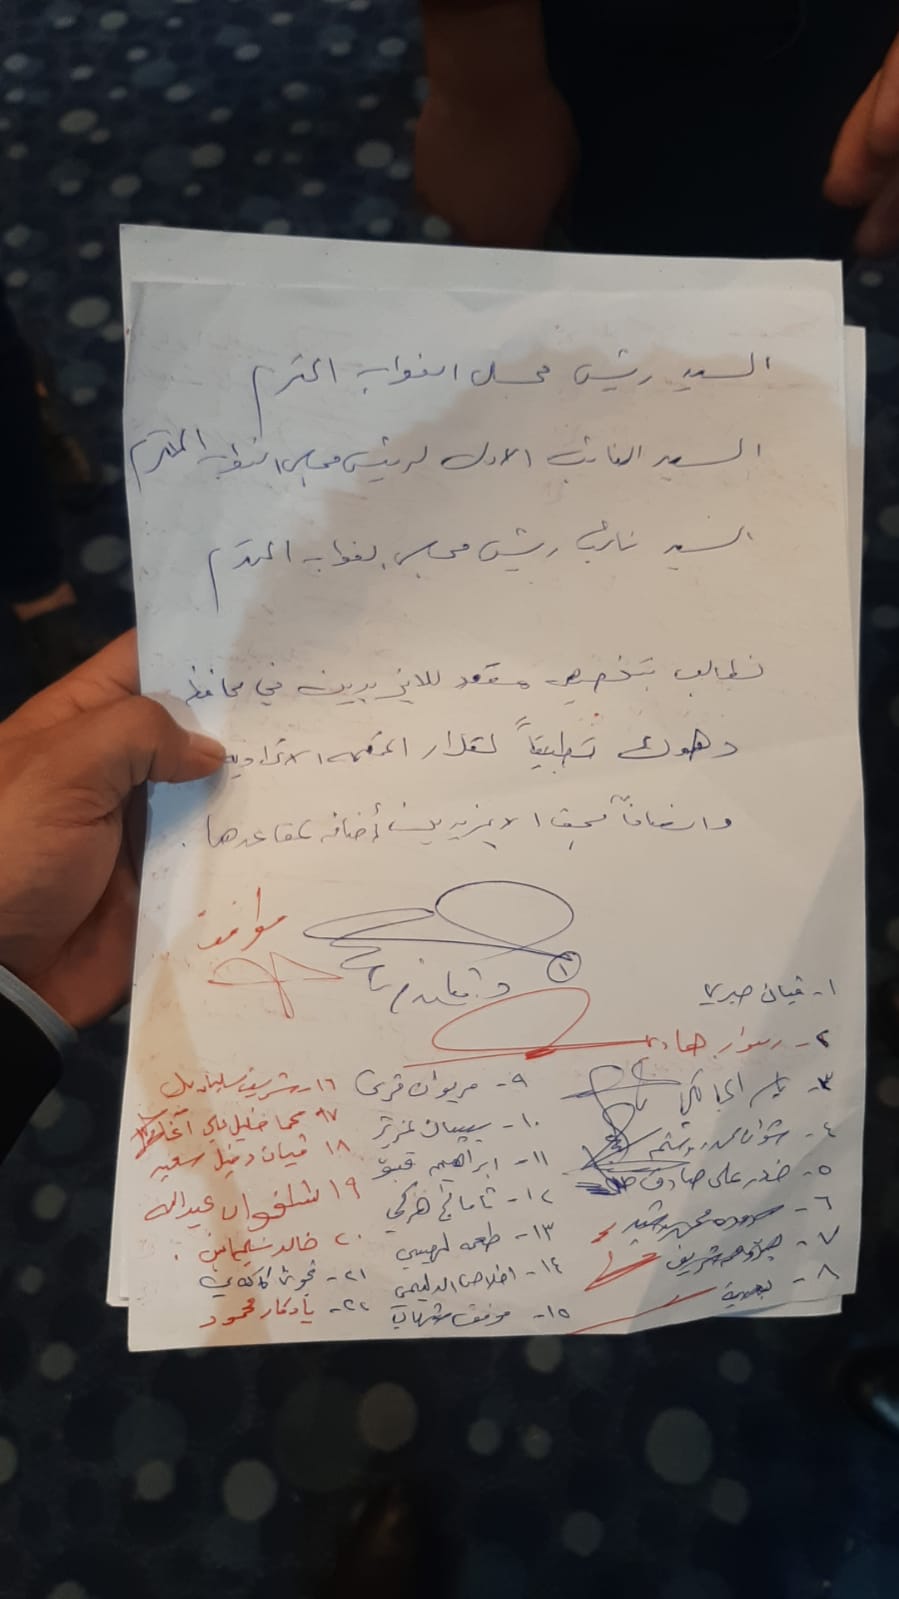 السيد رئيس مجلس النواب المحترم
السيد النائب الاول لرئيس مجلس النواب المحترم
السيد نائب رئيس مجلس النواب المحترم
نطالب بتخصيص مقعد للايزيديين في محافظة
دهوك تطبيقاً لقرار المحكمة الاتحادية
وانصافاً بحق الايزيديين أضافه لمقاعدها .
موافق
١
١- فيان صبري
٢- ريبوار هادي
٣-
٤- شوان محمد
٥- خدر علي صادق
٦-
٧- شريف
٨-
٩- مريوان قرني
١٠- عزيز
١١- ابراهيم
١٢- هركي
١٣- طعمه اللهيبي
١٤- اخلاص الدليمي
١٥- موفق
١٦- شريف سليمان
١٧ محما خليل علي آغا
١٨ فيان دخيل سعيد
١٩ شلفوان عبدالله
٢٠ خالد سليمان .
٢١-
٢٢- يادكار محمود